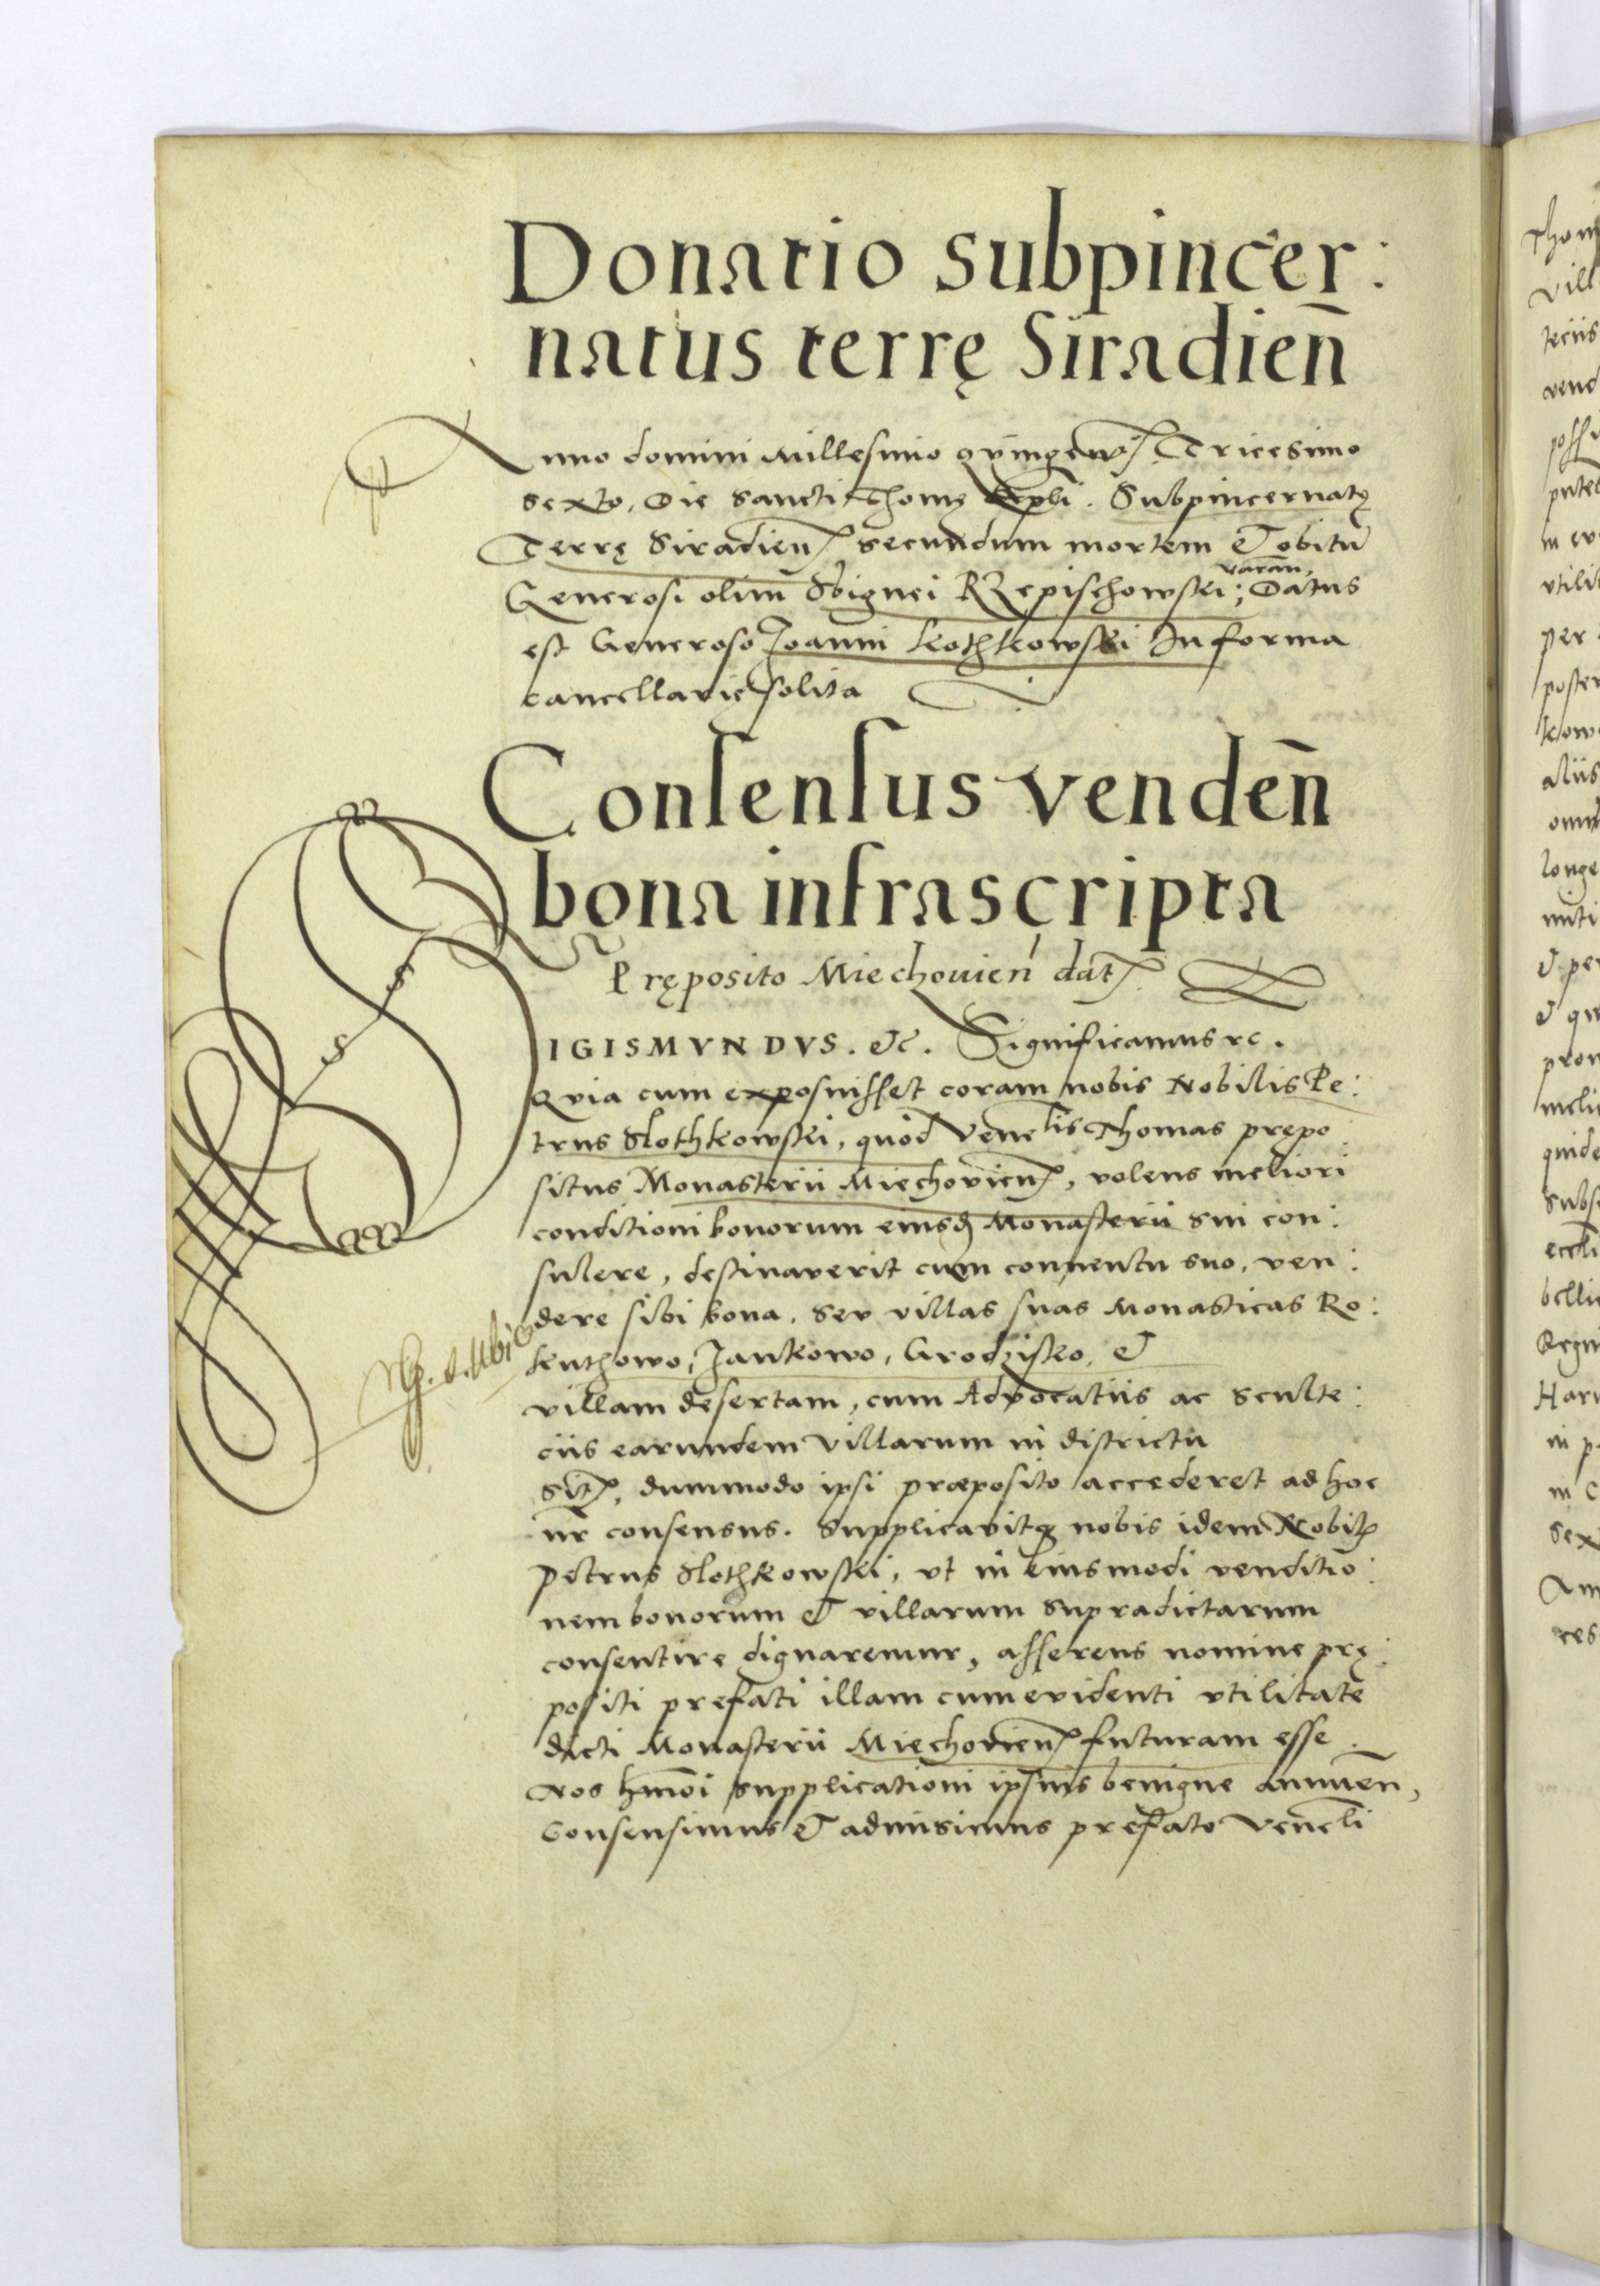 Donatio subpincer:
natus terrę Siradieñ
Anno domini Millesimo qvingen. Tricesimo
sexto, Die sancti Thomę Apli. Subpincernatq
Terrę Siradien. secundum mortem et obitũ
vacan,
Generosi olim Sbignei RZepischowski; Datus
est Generoso Joanni kothkowski In forma
cancellarie solita
Consensus vendeñ
bona infrascripta
Pręposito Miechouien dat.
SIGISMVNDVS. etc. Significamus rc.
Qvia cum exposuisset coram nobis Nobilis Pe:
trus Slothkowski, quod Venelis Thomas prępo
situs Monasterii Miechovien, volens meliori
conditioni bonorum eiusd Monasterii sui con:
sulere, destinaverit cum conuentu suo, ven:
dere sibi bona, Sev villas suas Monasticas Ro:
kuthowo, Jankowo, Grodzisko, et
villam desertam, cum Advocatiis ac sculte:
ciis earundem villarum in districtu
Sit, dummodo ipsi præposito accederet ad hoc
nr consensus. Supplicavitq nobis idem Nobil
Petrus Slothkowski, vt in eiusmodi venditio:
nem bonorum et villarum supradictarum
consentire dignaremur, asserens nomine prę:
positi prefati illam cum evidenti vtilitate
dicti Monasterii Miechovien futuram esse.
Nos hmõi supplicationi ipsius benigne annueñ,
Consensimus et admisimus prefato Veneli